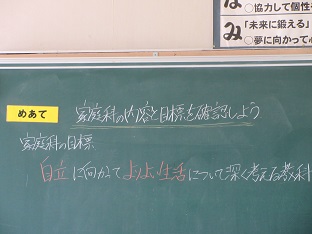 は ○協力して個性
み 「未来に鍛える」
○夢に向かって心
めあて 家庭科の内容と目標を確認しよう
家庭科の目標
自立に向かって よりよい生活について深く考える教科